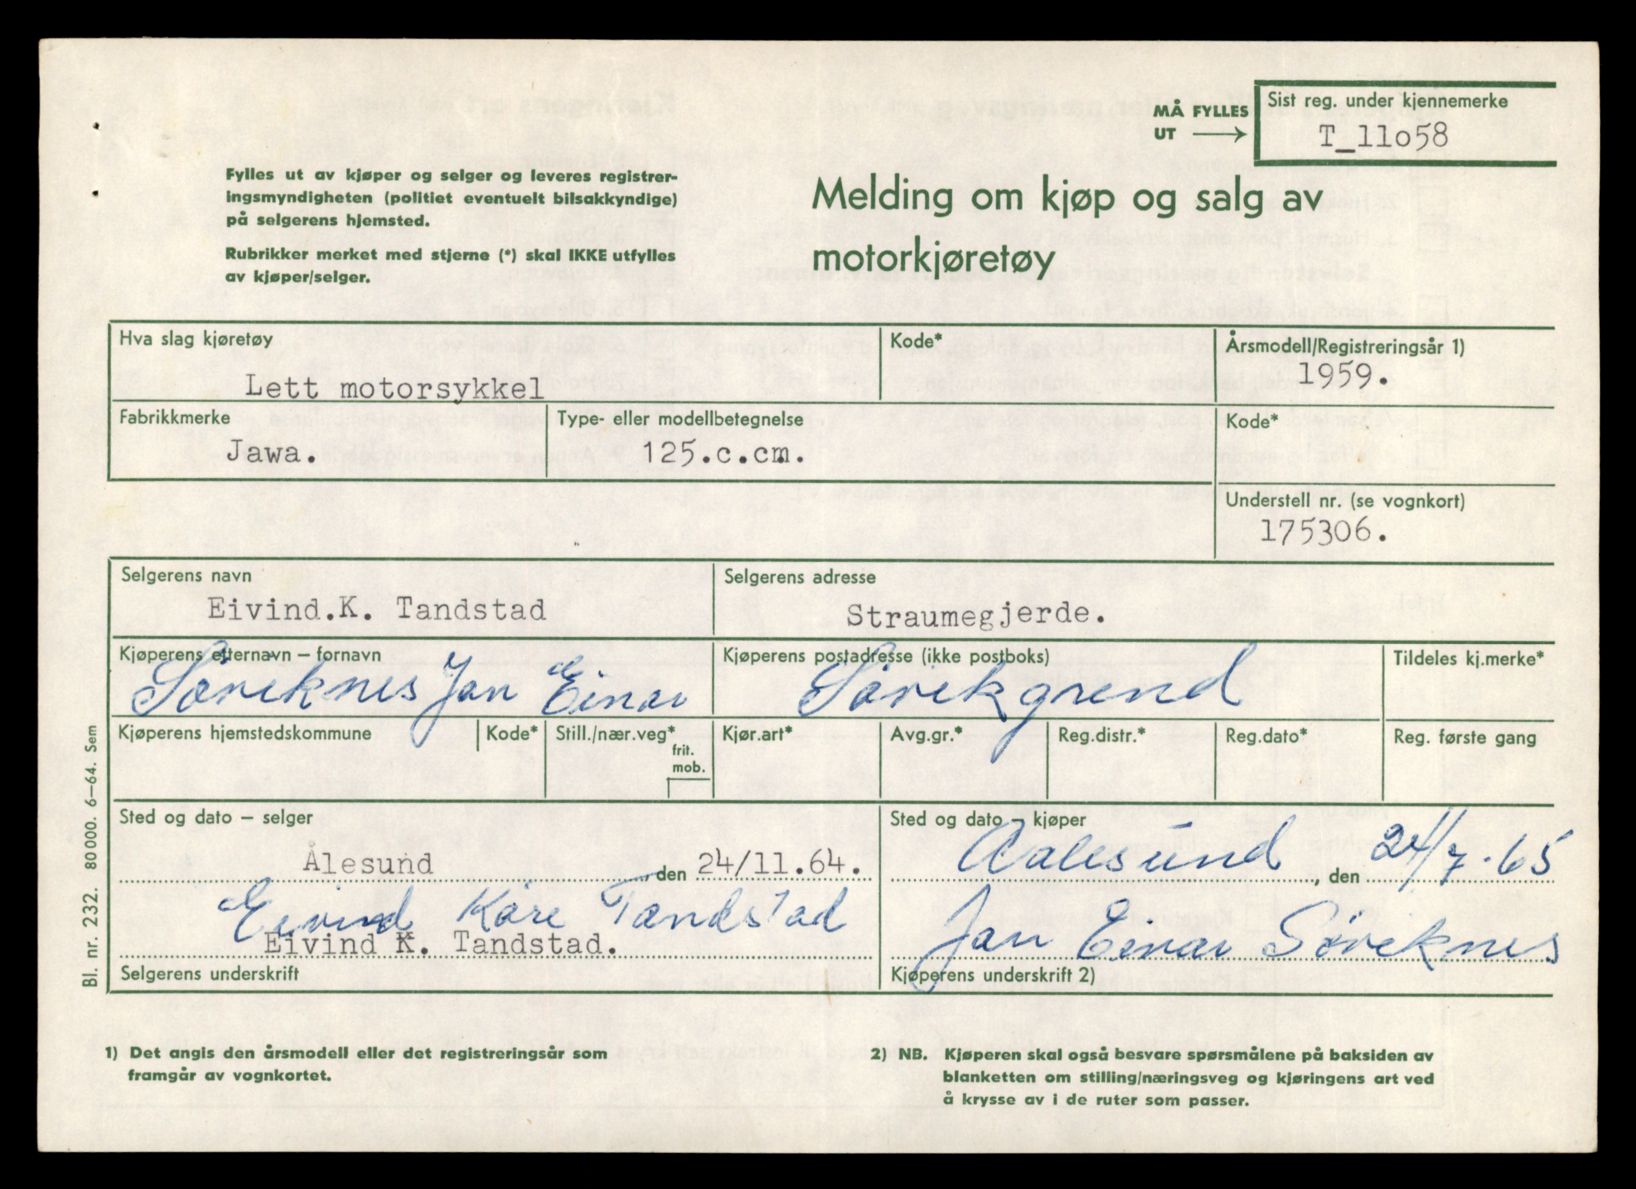 MÅ FYLLES
UT →
Sist reg. under kjennemerke
T_11o58
Fylles ut av kjøper og selger og leveres registrer-
ingsmyndigheten (politiet eventuelt bilsakkyndige)
på selgerens hjemsted.
Rubrikker merket med stjerne (*) skal IKKE utfylles
av kjøper/selger.
Melding om kjøp og salg av
motorkjøretøy
Hva slag kjøretøy
Lett motorsykkel
Kode*
Årsmodell/Registreringsår 1)
1959.
Fabrikkmerke
Jawa.
Type- eller modellbetegnelse
125.c.cm.
Kode*
Understell nr. (se vognkort)
175306.
Selgerens navn
Eivind.K. Tandstad
Selgerens adresse
Straumegjerde.
Kjøperens etternavn – fornavn
Søviknes Jan Einar
Kjøperens postadresse (ikke postboks)
Søvikgrend
Tildeles kj.merke*
Kjøperens hjemstedskommune
Kode*
Still./nær.veg*
frit.
mob.
Kjør.art*
Avg.gr.*
Reg.distr.*
Reg.dato*
Reg. første gang
Sted og dato – selger
Ålesund, den 24/11.64.
Eivind Kåre Tandstad
Eivind K. Tandstad.
Selgerens underskrift
Sted og dato – kjøper
Aalesund, den 24/7.65
Jan Einar Søviknes
Kjøperens underskrift 2)
Bl. nr. 232. 80000. 6–64. Sem
1) Det angis den årsmodell eller det registreringsår som
framgår av vognkortet.
2) NB. Kjøperen skal også besvare spørsmålene på baksiden av
blanketten om stilling/næringsveg og kjøringens art ved
å krysse av i de ruter som passer.